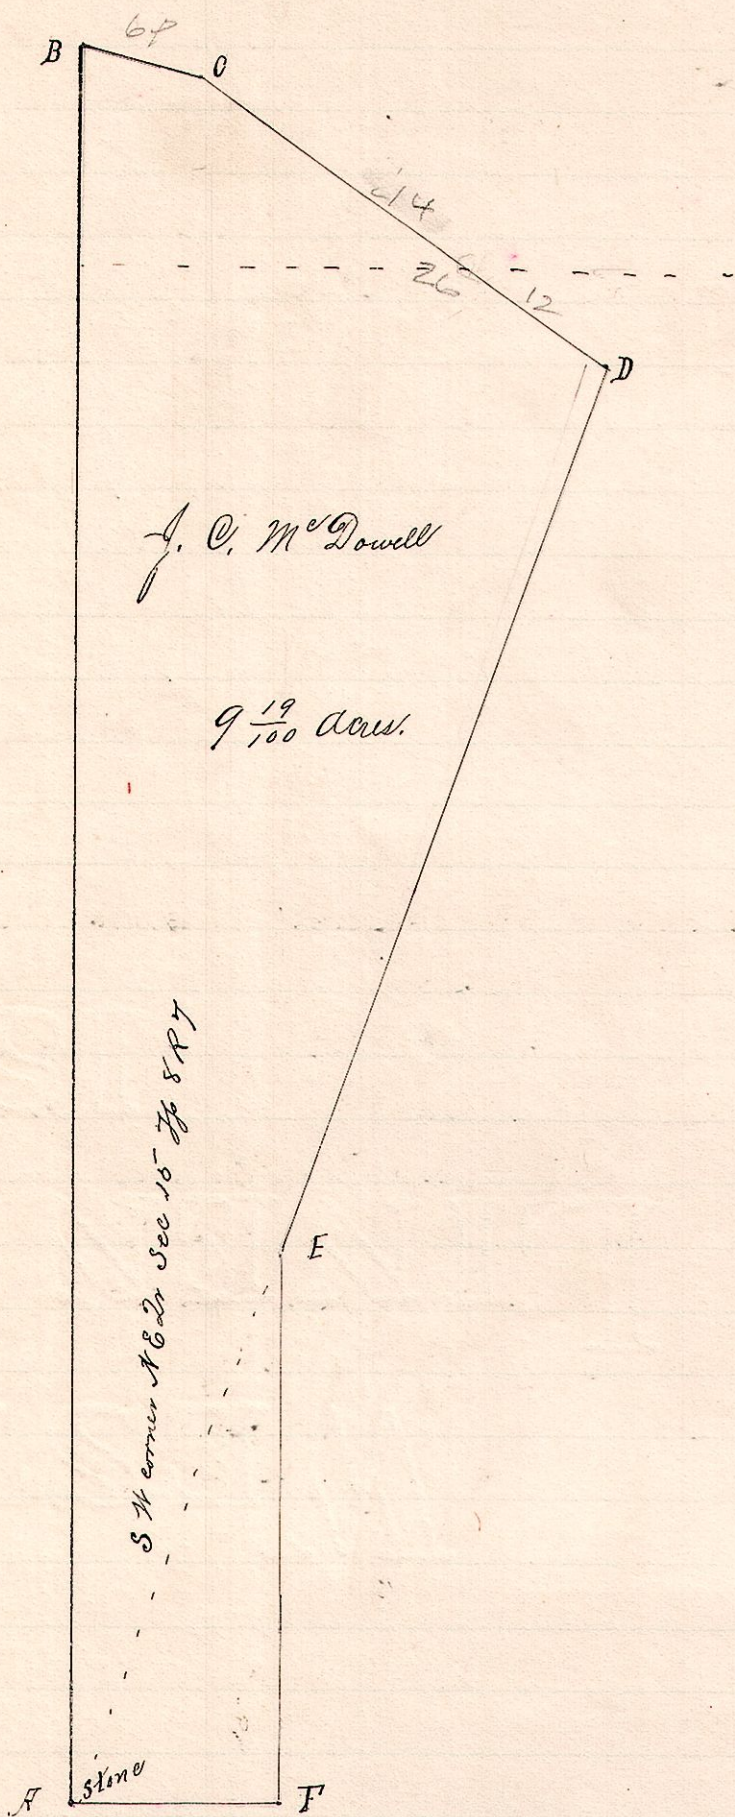 6P
B
C
14
26
12
D
J. C. McDowell
9 19/100 Acres.
S W corner N E Qr Sec 15 Tp 8 R 7
E
Stone
A
F